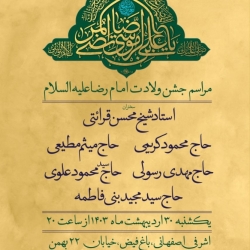 مراسم جشن ولادت امام رضا علیه السلام
سخنران
استاد شیخ محسن قرائتی
حاج محمود کریمی حاج میثم مطیعی
حاج مهدی رسولی حاج سید محمود علوی
حاج سید مجید بنی فاطمه
یکشنبه ۳۰ اردیبهشت ماه ۱۴۰۳ از ساعت ۲۰
اشرفی اصفهانی، باغ فیض، خیابان ۲۲ بهمن